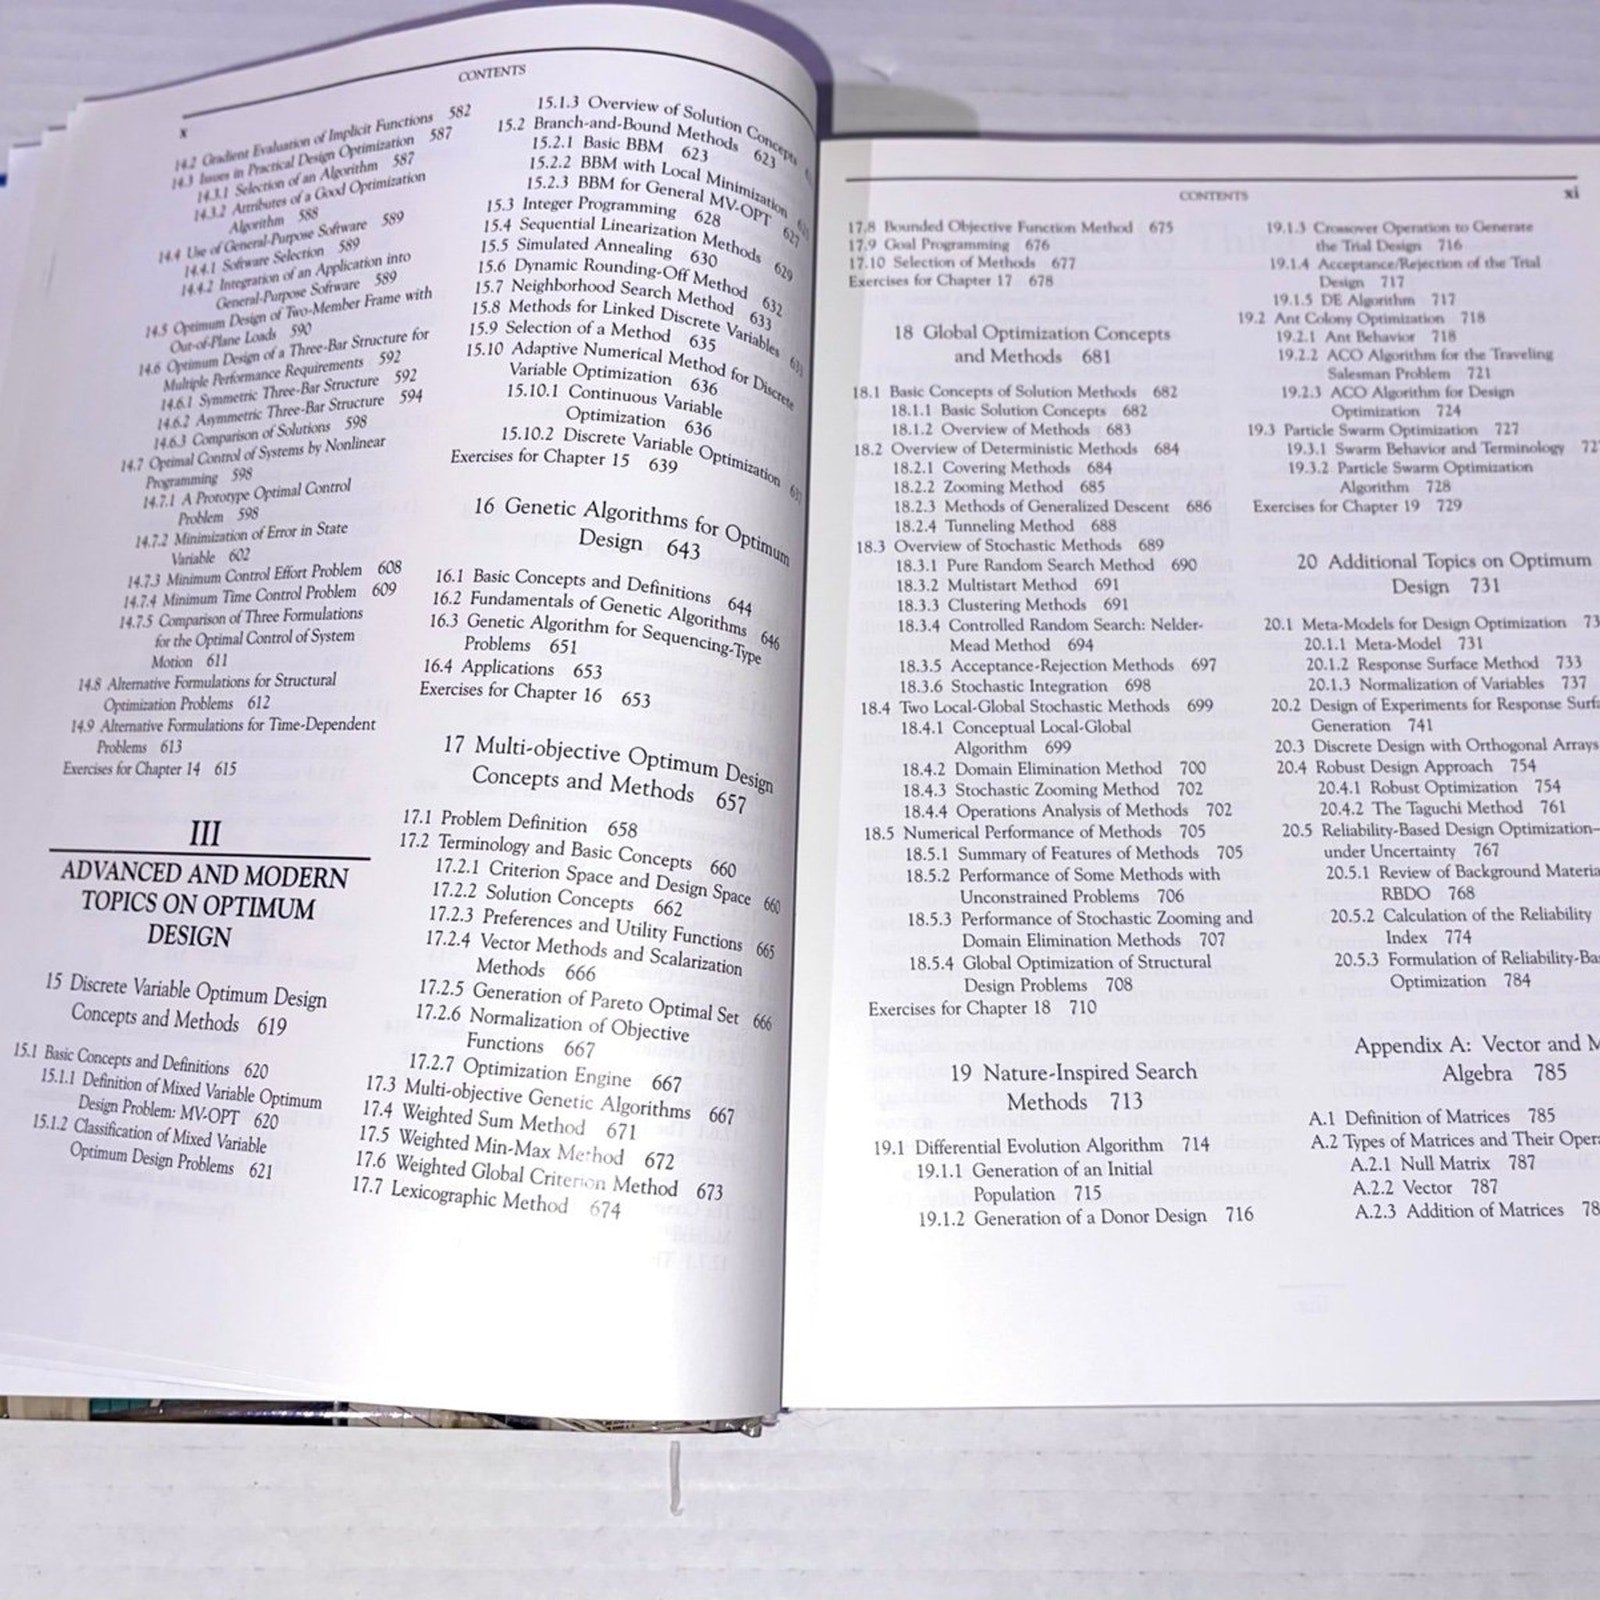 CONTENTS
x
14.2 Gradient Evaluation of Implicit Functions 582
14.3 Issues in Practical Design Optimization 587
14.3.1 Selection of an Algorithm 587
14.3.2 Attributes of a Good Optimization
Algorithm 588
14.4 Use of General-Purpose Software 589
14.4.1 Software Selection 589
14.4.2 Integration of an Application into
General-Purpose Software 589
14.5 Optimum Design of Two-Member Frame with
Out-of-Plane Loads 590
14.6 Optimum Design of a Three-Bar Structure for
Multiple Performance Requirements 592
14.6.1 Symmetric Three-Bar Structure 592
14.6.2 Asymmetric Three-Bar Structure 594
14.6.3 Comparison of Solutions 598
14.7 Optimal Control of Systems by Nonlinear
Programming 598
14.7.1 A Prototype Optimal Control
Problem 598
14.7.2 Minimization of Error in State
Variable 602
14.7.3 Minimum Control Effort Problem 608
14.7.4 Minimum Time Control Problem 609
14.7.5 Comparison of Three Formulations
for the Optimal Control of System
Motion 611
14.8 Alternative Formulations for Structural
Optimization Problems 612
14.9 Alternative Formulations for Time-Dependent
Problems 613
Exercises for Chapter 14 615
III
ADVANCED AND MODERN
TOPICS ON OPTIMUM
DESIGN
15 Discrete Variable Optimum Design
Concepts and Methods 619
15.1 Basic Concepts and Definitions 620
15.1.1 Definition of Mixed Variable Optimum
Design Problem: MV-OPT 620
15.1.2 Classification of Mixed Variable
Optimum Design Problems 621
15.1.3 Overview of Solution Concepts
15.2 Branch-and-Bound Methods 623
15.2.1 Basic BBM 623
15.2.2 BBM with Local Minimization
15.2.3 BBM for General MV-OPT 627
15.3 Integer Programming 628
15.4 Sequential Linearization Methods 629
15.5 Simulated Annealing 630
15.6 Dynamic Rounding-Off Method 632
15.7 Neighborhood Search Method 633
15.8 Methods for Linked Discrete Variables
15.9 Selection of a Method 635
15.10 Adaptive Numerical Method for Discrete
Variable Optimization 636
15.10.1 Continuous Variable
Optimization 636
15.10.2 Discrete Variable Optimization
Exercises for Chapter 15 639
16 Genetic Algorithms for Optimum
Design 643
16.1 Basic Concepts and Definitions 644
16.2 Fundamentals of Genetic Algorithms 646
16.3 Genetic Algorithm for Sequencing-Type
Problems 651
16.4 Applications 653
Exercises for Chapter 16 653
17 Multi-objective Optimum Design
Concepts and Methods 657
17.1 Problem Definition 658
17.2 Terminology and Basic Concepts 660
17.2.1 Criterion Space and Design Space 660
17.2.2 Solution Concepts 662
17.2.3 Preferences and Utility Functions 665
17.2.4 Vector Methods and Scalarization
Methods 666
17.2.5 Generation of Pareto Optimal Set 666
17.2.6 Normalization of Objective
Functions 667
17.2.7 Optimization Engine 667
17.3 Multi-objective Genetic Algorithms 667
17.4 Weighted Sum Method 671
17.5 Weighted Min-Max Method 672
17.6 Weighted Global Criterion Method 673
17.7 Lexicographic Method 674
CONTENTS
xi
17.8 Bounded Objective Function Method 675
17.9 Goal Programming 676
17.10 Selection of Methods 677
Exercises for Chapter 17 678
18 Global Optimization Concepts
and Methods 681
18.1 Basic Concepts of Solution Methods 682
18.1.1 Basic Solution Concepts 682
18.1.2 Overview of Methods 683
18.2 Overview of Deterministic Methods 684
18.2.1 Covering Methods 684
18.2.2 Zooming Method 685
18.2.3 Methods of Generalized Descent 686
18.2.4 Tunneling Method 688
18.3 Overview of Stochastic Methods 689
18.3.1 Pure Random Search Method 690
18.3.2 Multistart Method 691
18.3.3 Clustering Methods 691
18.3.4 Controlled Random Search: Nelder-
Mead Method 694
18.3.5 Acceptance-Rejection Methods 697
18.3.6 Stochastic Integration 698
18.4 Two Local-Global Stochastic Methods 699
18.4.1 Conceptual Local-Global
Algorithm 699
18.4.2 Domain Elimination Method 700
18.4.3 Stochastic Zooming Method 702
18.4.4 Operations Analysis of Methods 702
18.5 Numerical Performance of Methods 705
18.5.1 Summary of Features of Methods 705
18.5.2 Performance of Some Methods with
Unconstrained Problems 706
18.5.3 Performance of Stochastic Zooming and
Domain Elimination Methods 707
18.5.4 Global Optimization of Structural
Design Problems 708
Exercises for Chapter 18 710
19 Nature-Inspired Search
Methods 713
19.1 Differential Evolution Algorithm 714
19.1.1 Generation of an Initial
Population 715
19.1.2 Generation of a Donor Design 716
19.1.3 Crossover Operation to Generate
the Trial Design 716
19.1.4 Acceptance/Rejection of the Trial
Design 717
19.1.5 DE Algorithm 717
19.2 Ant Colony Optimization 718
19.2.1 Ant Behavior 718
19.2.2 ACO Algorithm for the Traveling
Salesman Problem 721
19.2.3 ACO Algorithm for Design
Optimization 724
19.3 Particle Swarm Optimization 727
19.3.1 Swarm Behavior and Terminology 72
19.3.2 Particle Swarm Optimization
Algorithm 728
Exercises for Chapter 19 729
20 Additional Topics on Optimum
Design 731
20.1 Meta-Models for Design Optimization 73
20.1.1 Meta-Model 731
20.1.2 Response Surface Method 733
20.1.3 Normalization of Variables 737
20.2 Design of Experiments for Response Surfa
Generation 741
20.3 Discrete Design with Orthogonal Arrays
20.4 Robust Design Approach 754
20.4.1 Robust Optimization 754
20.4.2 The Taguchi Method 761
20.5 Reliability-Based Design Optimization—
under Uncertainty 767
20.5.1 Review of Background Materia
RBDO 768
20.5.2 Calculation of the Reliability
Index 774
20.5.3 Formulation of Reliability-Bas
Optimization 784
Appendix A: Vector and M
Algebra 785
A.1 Definition of Matrices 785
A.2 Types of Matrices and Their Opera
A.2.1 Null Matrix 787
A.2.2 Vector 787
A.2.3 Addition of Matrices 78